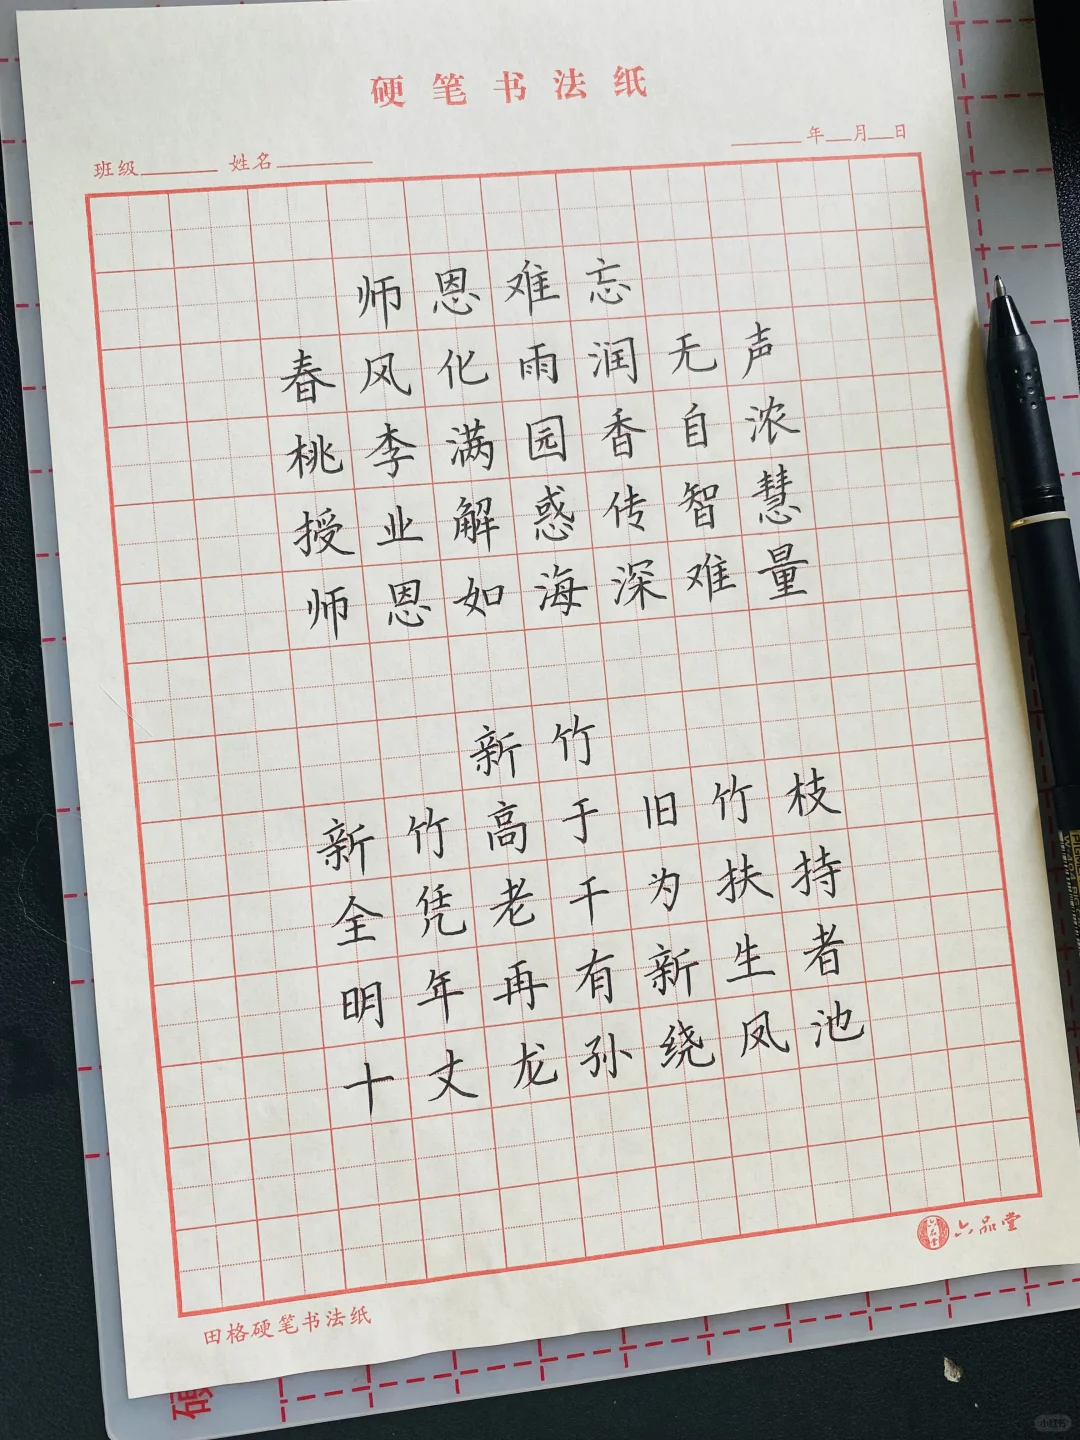 硬笔书法纸
班级 姓名 年 月 日
师恩难忘
春风化雨润无声
桃李满园香自浓
授业解惑传智慧
师恩如海深难量
新竹
新竹高于旧竹枝
全凭老干为扶持
明年再有新生者
十丈龙孙绕凤池
六品堂
田格硬笔书法纸
小红书